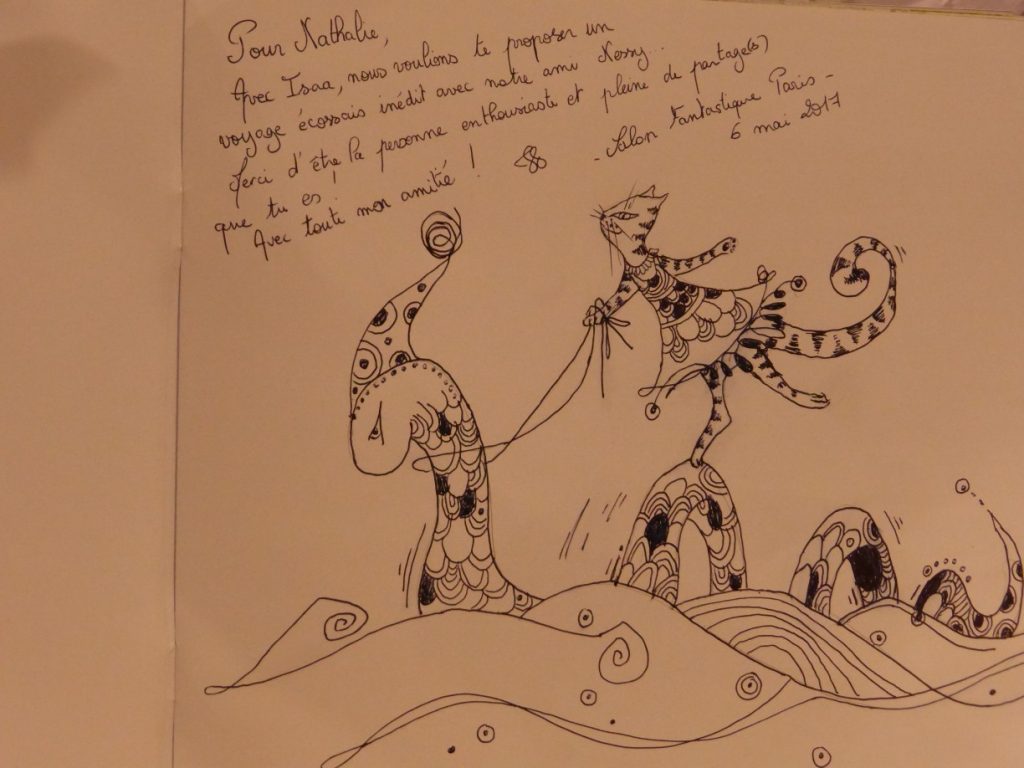 Pour Nathalie,
Avec Isaa, nous voulions te proposer un
voyage écossais inédit avec notre ami Nessy...
Merci d'être la personne enthousiaste et pleine de partage(s)
que tu es !
Avec toute mon amitié !
- Salon Fantastique Paris -
6 mai 2017